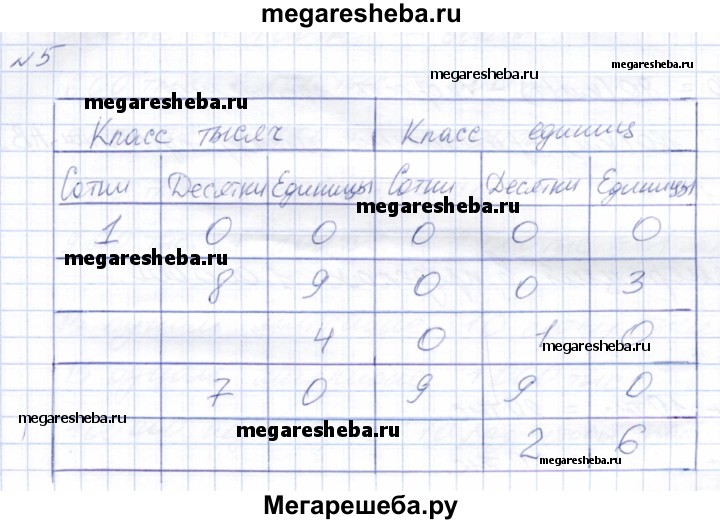 megaresheba.ru
№5
megaresheba.ru
megaresheba.ru
megaresheba.ru
Класс тысяч Класс единиц
Сотни Десятки Единицы Сотни Десятки Единицы
megaresheba.ru
1 0 0 0 0 0
megaresheba.ru
8 9 0 0 3
4 0 1 0
megaresheba.ru
7 0 9 9 0
megaresheba.ru
megaresheba.ru
2 6
megaresheba.ru
Мегарешеба.ру